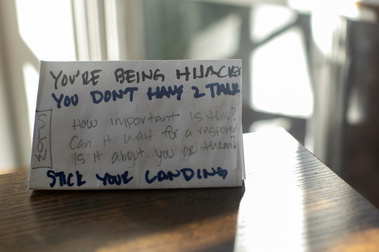 YOU'RE BEING HIJACKE
YOU DON'T HAVE 2 TALK
How important is this?
Can it wait for a
Is it about you or them
STICK YOUR LANDING